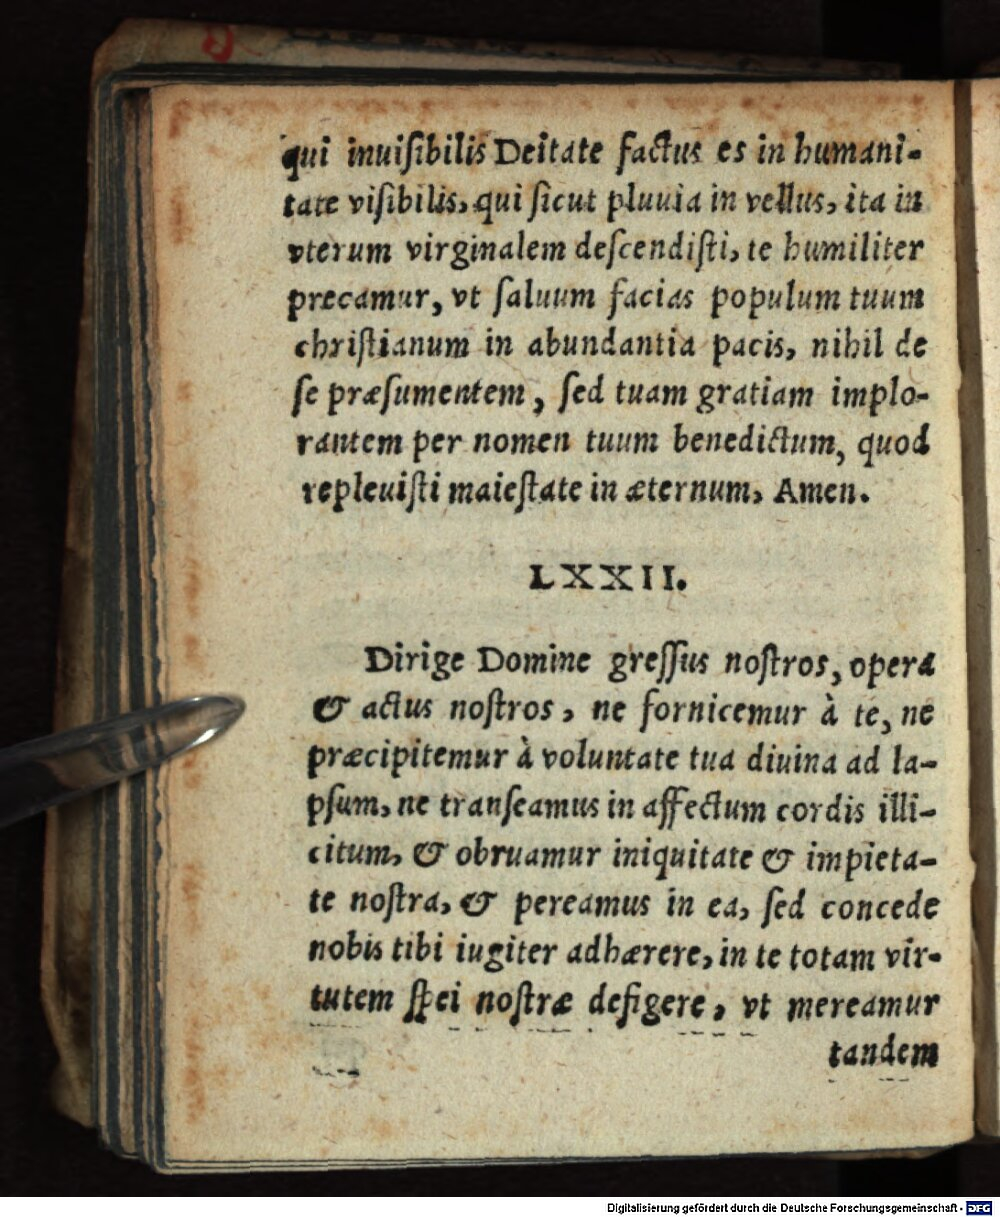 qui inuiſibilis Deitate factus es in humani-
tate viſibilis, qui ſicut pluuia in vellus, ita in
vterum virginalem deſcendiſti, te humiliter
precamur, vt ſaluum facias populum tuum
chriſtianum in abundantia pacis, nihil de
ſe præſumentem, ſed tuam gratiam implo-
rantem per nomen tuum benedictum, quod
repleuiſti maieſtate in æternum, Amen.
LXXII.
Dirige Domine greſſus noſtros, opera
& actus noſtros, ne fornicemur à te, ne
præcipitemur à voluntate tua diuina ad la-
pſum, ne tranſeamus in affectum cordis illi-
citum, & obruamur iniquitate & impieta-
te noſtra, & pereamus in ea, ſed concede
nobis tibi iugiter adhærere, in te totam vir-
tutem ſpei noſtræ defigere, vt mereamur
tandem
Digitalisierung gefördert durch die Deutsche Forschungsgemeinschaft - DFG